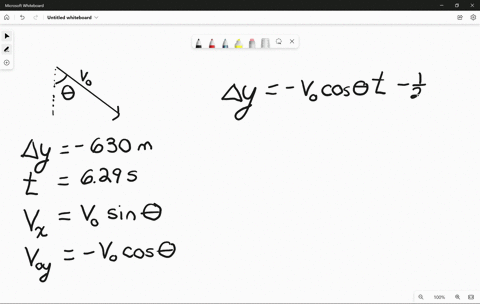 Microsoft Whiteboard
Untitled whiteboard
V₀
θ
Δy = -V₀ cosθ t - 1/2
Δy = -630 m
t = 6.29 s
Vₓ = V₀ sinθ
V₀y = -V₀ cosθ
100%